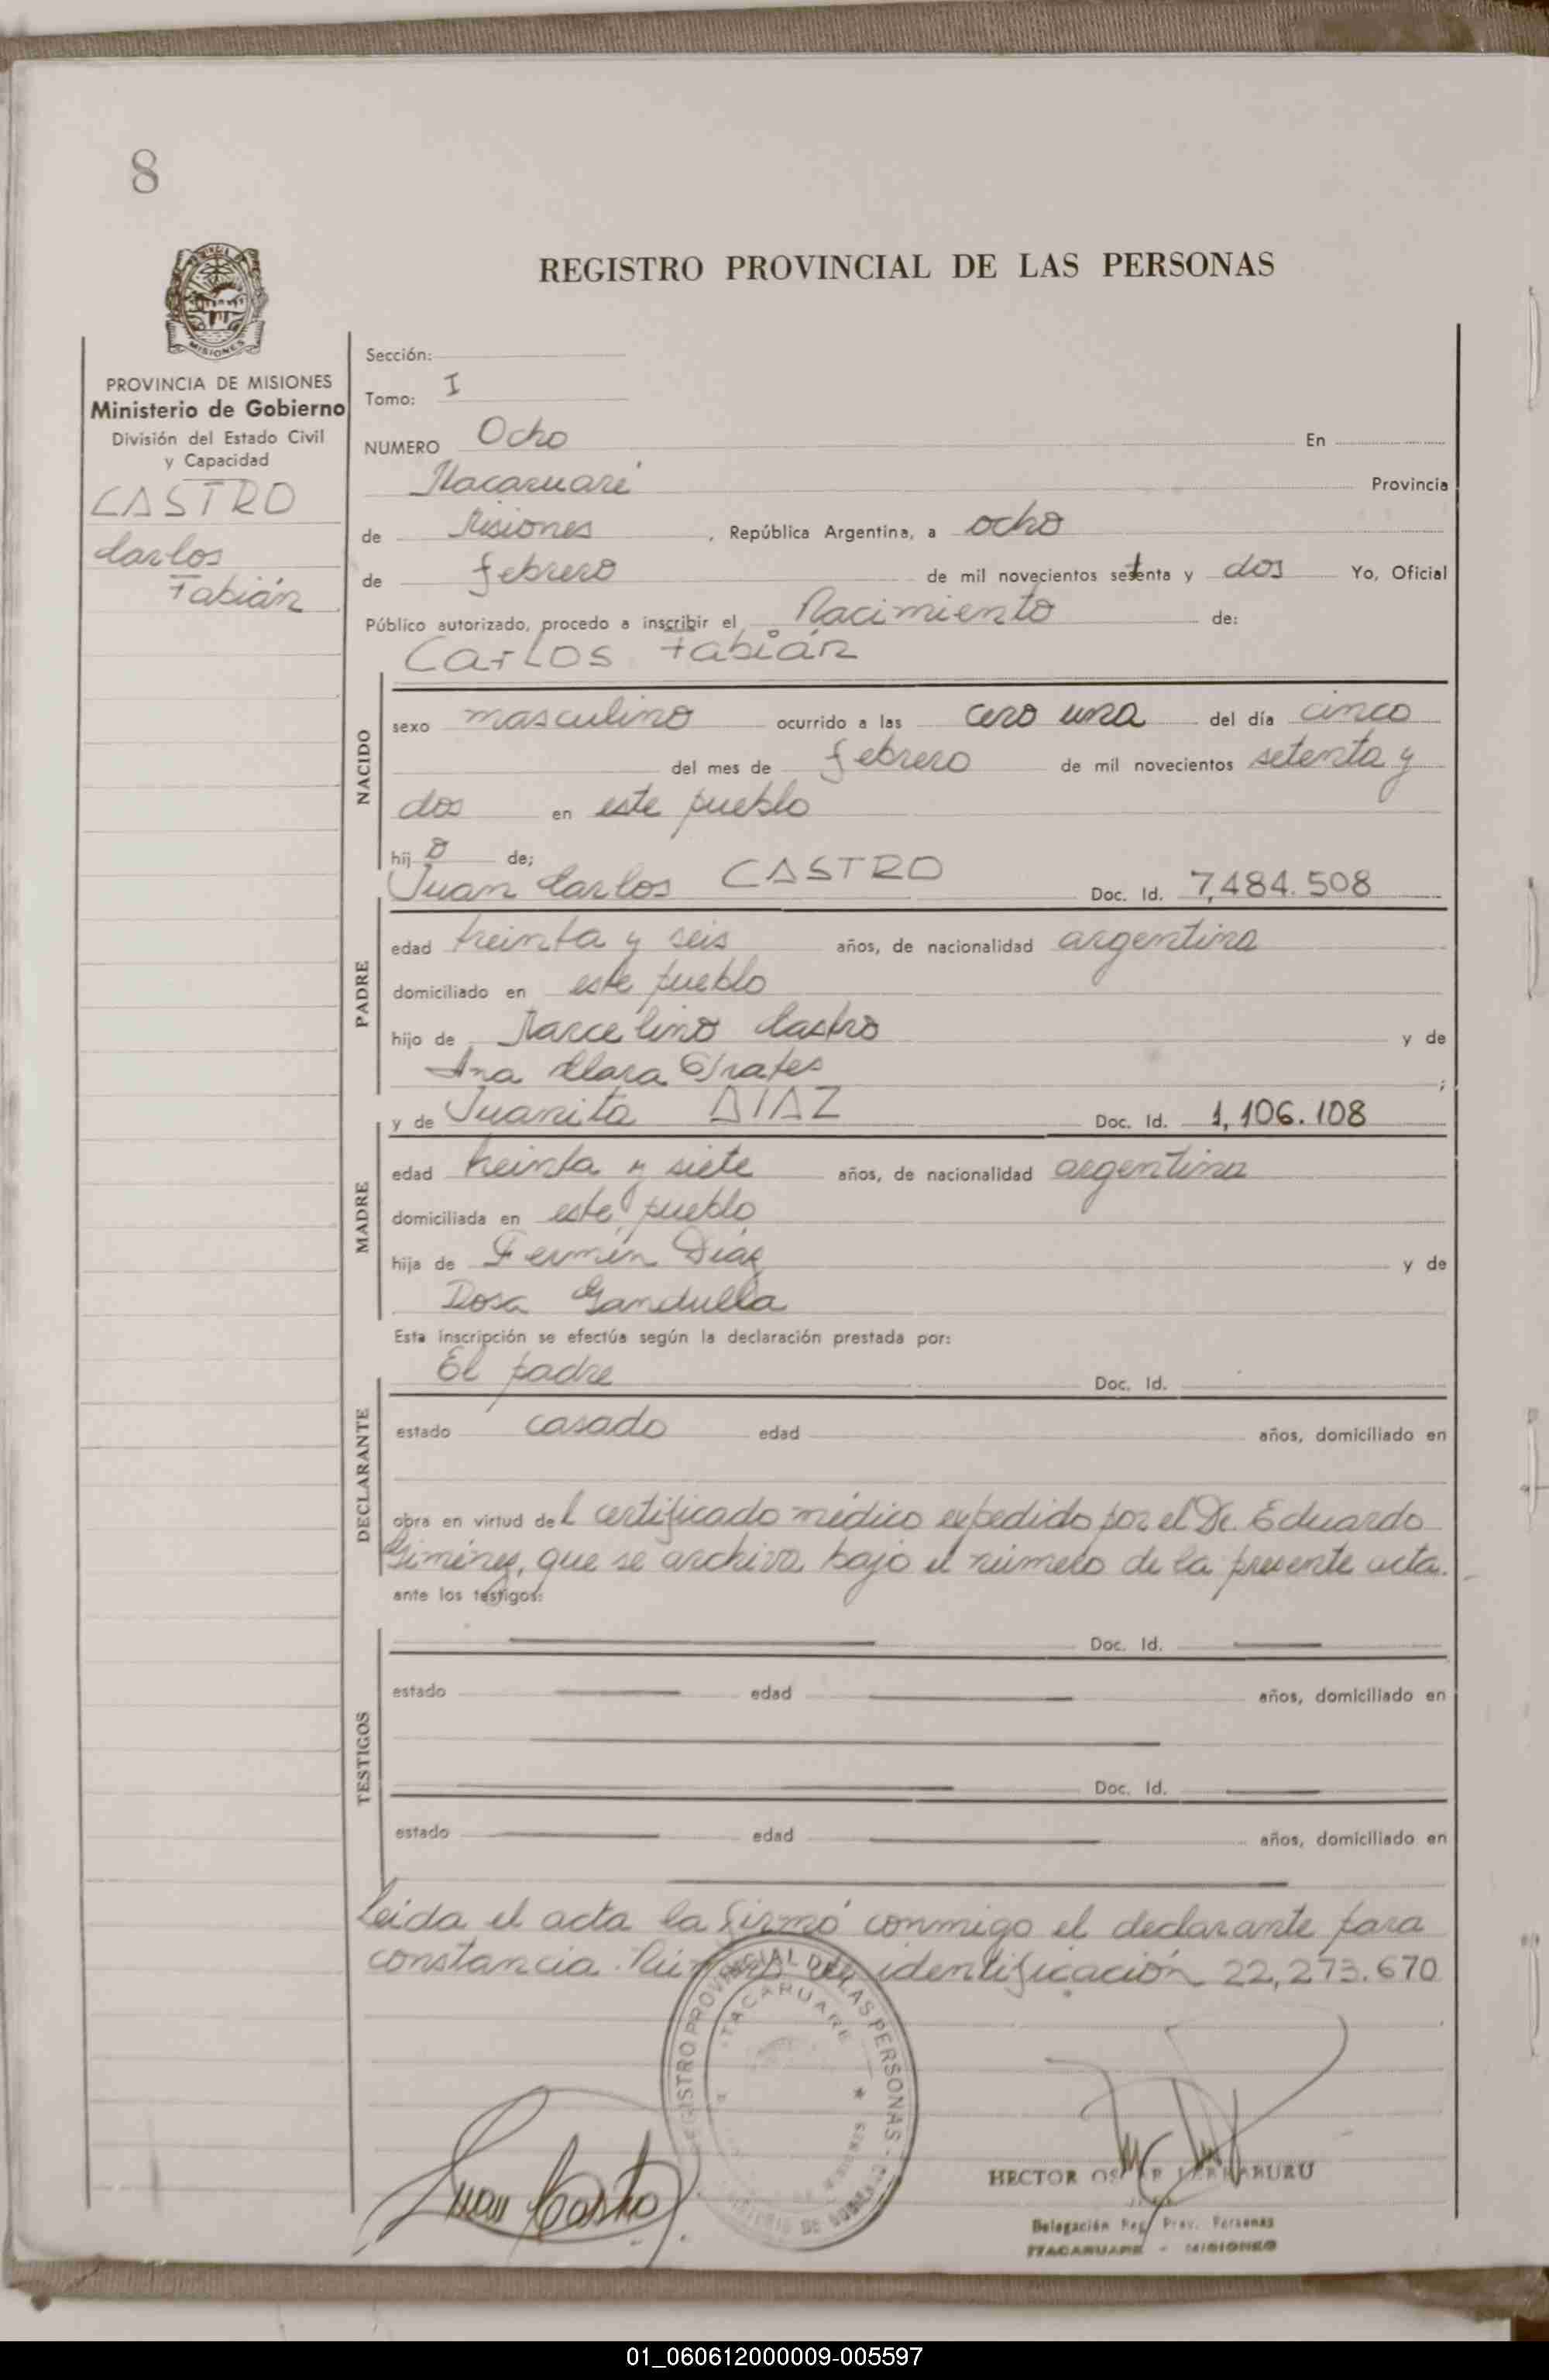 8
REGISTRO PROVINCIAL DE LAS PERSONAS
MISIONES
PROVINCIA DE MISIONES
Ministerio de Gobierno
División del Estado Civil
y Capacidad
CASTRO
Carlos
Fabián
Sección:
Tomo: I
NUMERO Ocho En
Itacaruaré Provincia
de Misiones, República Argentina, a ocho
de febrero de mil novecientos setenta y dos Yo, Oficial
Público autorizado, procedo a inscribir el Nacimiento de:
Carlos Fabián
NACIDO
sexo masculino ocurrido a las cero una del día cinco
del mes de febrero de mil novecientos setenta y
dos en este pueblo
hijo de;
Juan Carlos CASTRO Doc. Id. 7,484.508
PADRE
edad treinta y seis años, de nacionalidad argentina
domiciliado en este pueblo
hijo de Marcelino Castro y de
Ana Clara Prates;
y de Juanita DIAZ Doc. Id. 1,106.108
MADRE
edad treinta y siete años, de nacionalidad argentina
domiciliada en este pueblo
hija de Fermín Díaz y de
Rosa Gandulla
Esta inscripción se efectúa según la declaración prestada por:
El padre Doc. Id.
DECLARANTE
estado casado edad años, domiciliado en
obra en virtud del certificado médico expedido por el Dr. Eduardo
Giménez, que se archiva bajo el número de la presente acta.
ante los testigos:
TESTIGOS
Doc. Id.
estado edad años, domiciliado en
Doc. Id.
estado edad años, domiciliado en
Leida el acta la firmó conmigo el declarante para
constancia. Número de identificación 22,273.670
REGISTRO PROVINCIAL DE LAS PERSONAS
ITACARUARE
MISIONES
Juan Castro
HECTOR
Delegación Reg. Prov. Personas
ITACARUARE - MISIONES
01_060612000009-005597